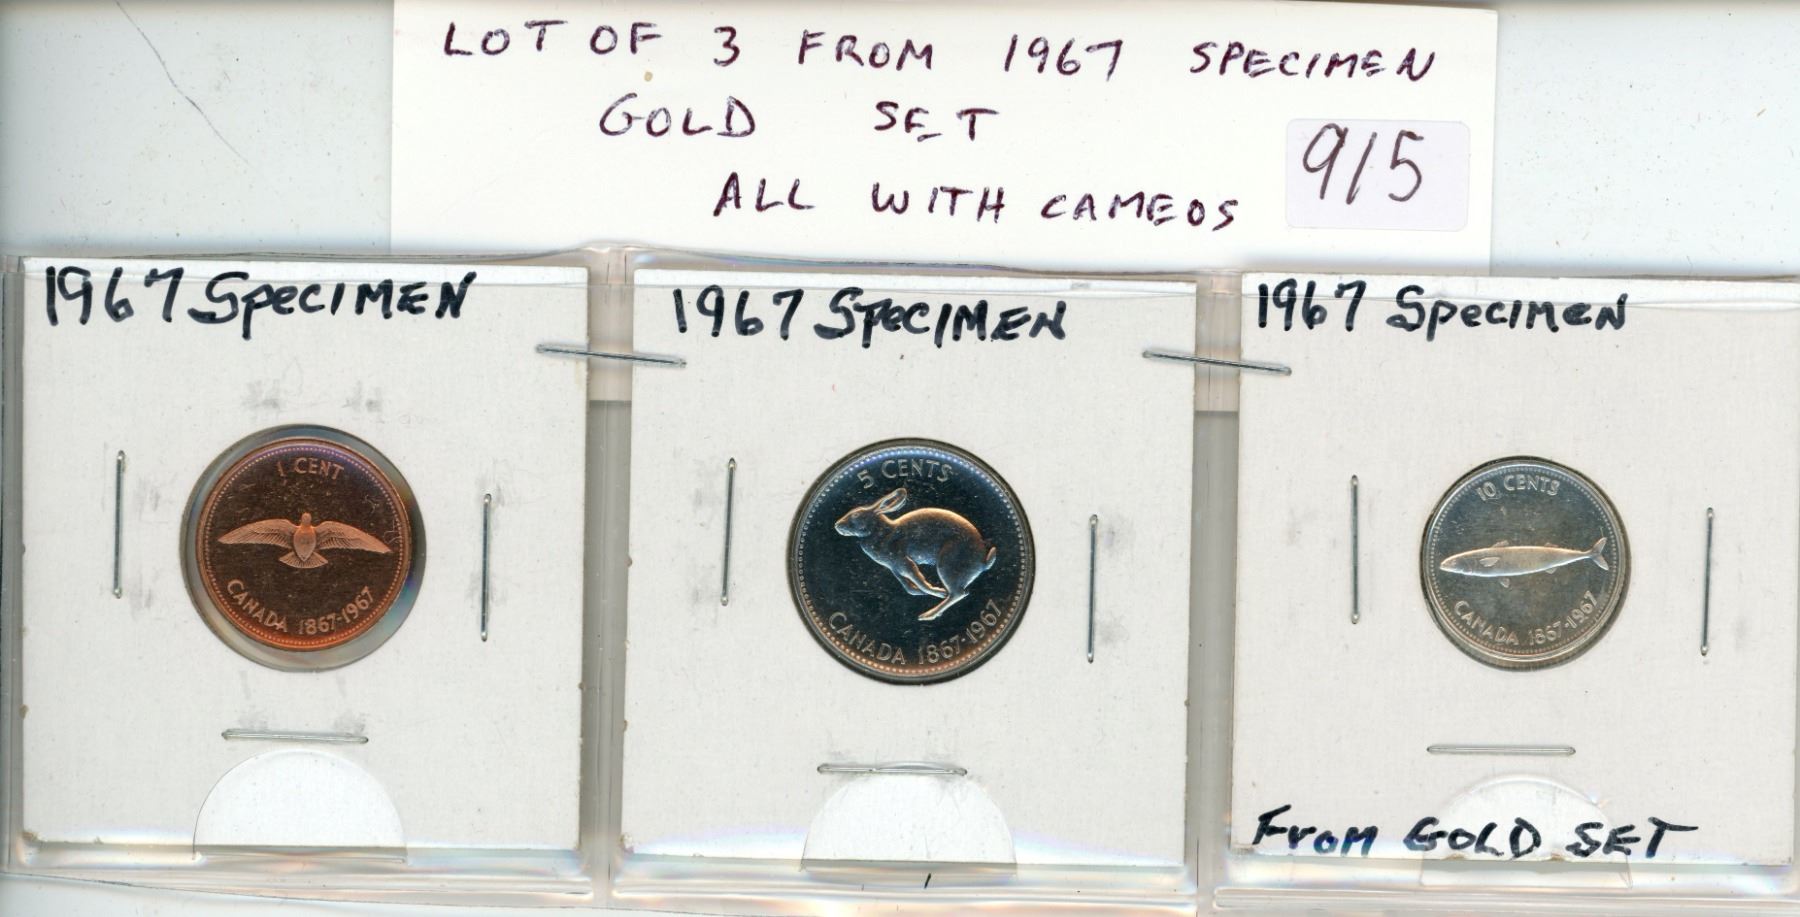 LOT OF 3 FROM 1967 SPECIMEN
GOLD SET
915
ALL WITH CAMEOS
1967 SPECIMEN
1 CENT
CANADA 1867-1967
1967 SPECIMEN
5 CENTS
CANADA 1867-1967
1967 SPECIMEN
10 CENTS
CANADA 1867-1967
FROM GOLD SET